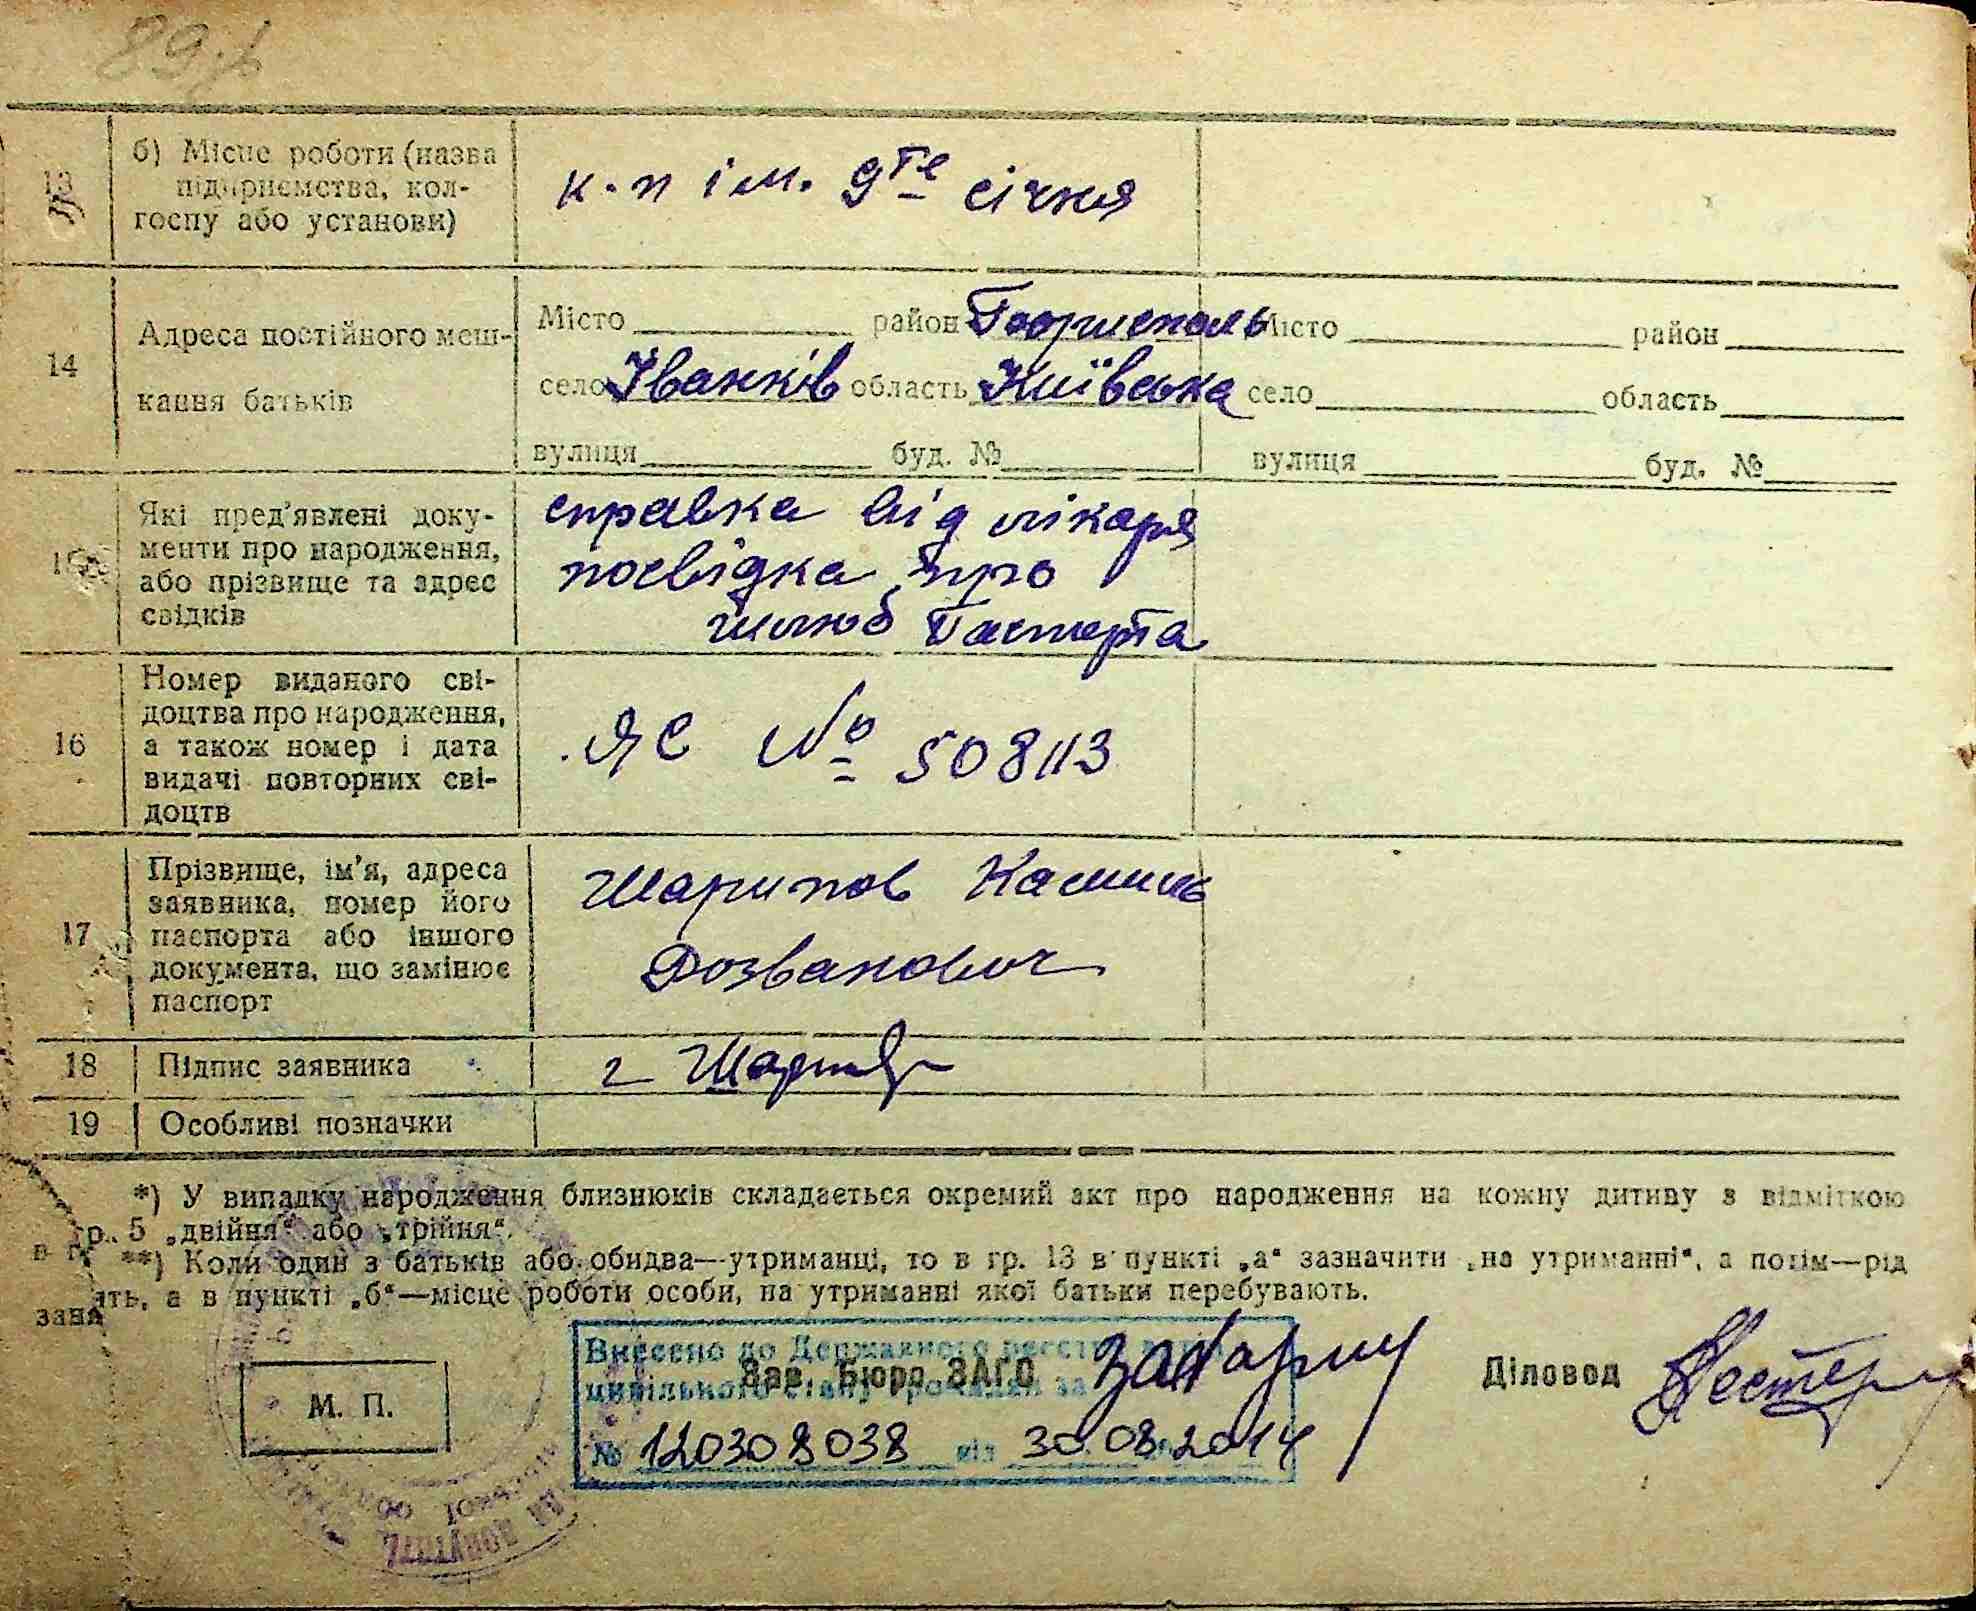 13
б) Місце роботи (назва
підприємства, кол-
госпу або установи)
к-п ім. 9те січня
14
Адреса постійного меш-
кання батьків
Місто район Бориспаль
село Іванків область Київська
вулиця буд. №
Місто район
село область
вулиця буд. №
15
Які пред'явлені доку-
менти про народження,
або прізвище та адрес
свідків
справка від лікаря
посвідка про
шлюб
16
Номер виданого сві-
доцтва про народження,
а також номер і дата
видачі повторних сві-
доцтв
ЯС № 508113
17
Прізвище, ім'я, адреса
заявника, номер його
паспорта або іншого
документа, що замінює
паспорт
Шарипов Камиль
Дозванович
18
Підпис заявника
19
Особливі позначки
*) У випадку народження близнюків складається окремий акт про народження на кожну дитину з відміткою
в гр. 5 „двійня“ або „трійня“.
**) Коли один з батьків або обидва—утриманці, то в гр. 13 в пункті „а“ зазначити „на утриманні“, а потім—рід
занять, а в пункті „б“—місце роботи особи, на утриманні якої батьки перебувають.
М. П.
Внесено до Державного реєстру актів
цивільного стану громадян за
№ 120308038 від 30.08.2014
Зав. Бюро ЗАГС
Діловод